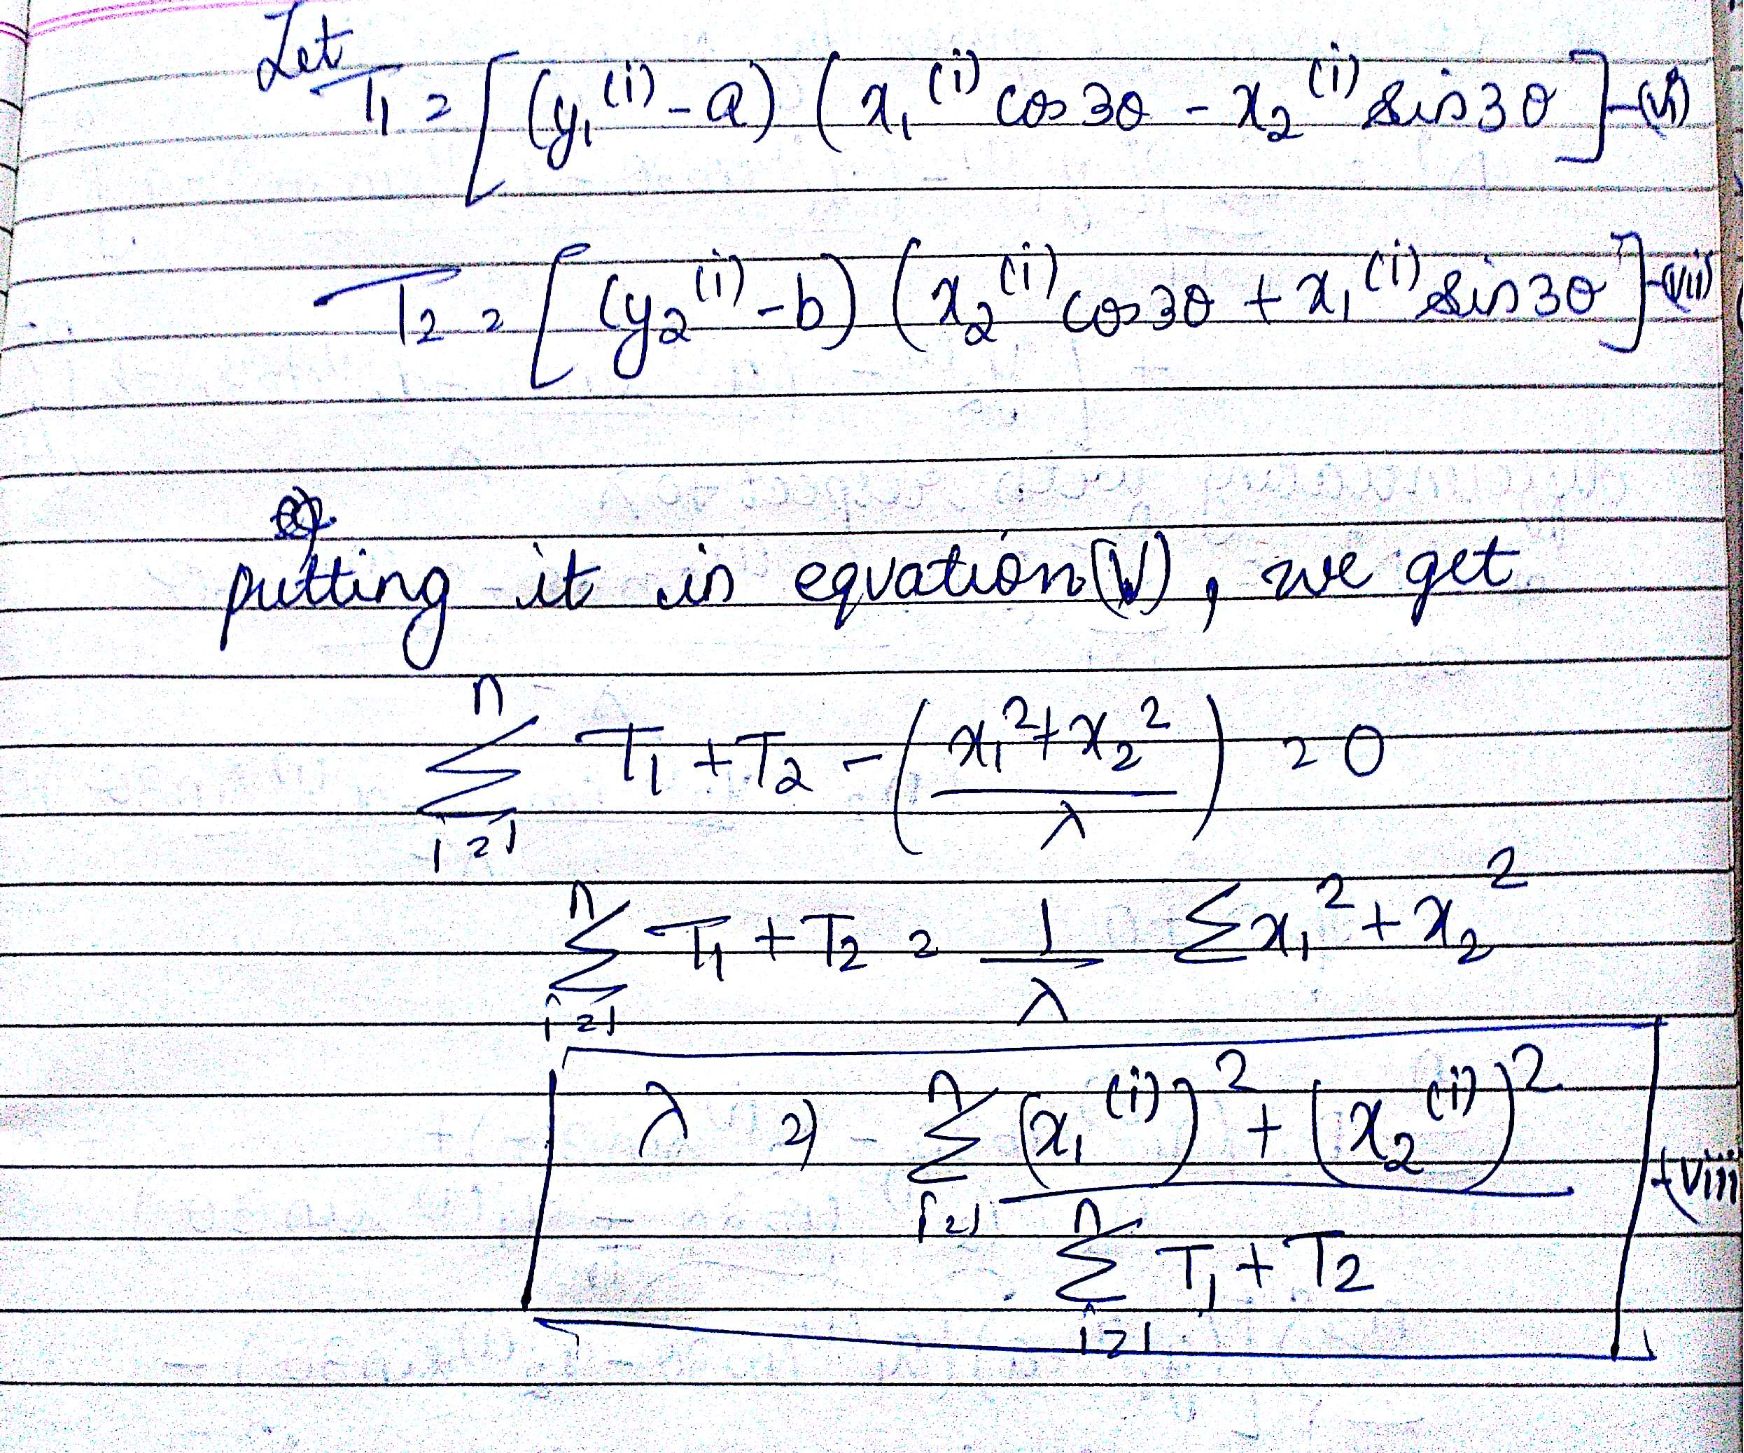 Let
T₁ = [(y₁⁽ⁱ⁾ - a) (x₁⁽ⁱ⁾ cos 3θ - x₂⁽ⁱ⁾ sin 3θ] -(vi)
T₂ = [(y₂⁽ⁱ⁾ - b) (x₂⁽ⁱ⁾ cos 3θ + x₁⁽ⁱ⁾ sin 3θ] -(vii)
putting it in equation (V), we get
n
∑ T₁ + T₂ - ( (x₁² + x₂²) / λ ) = 0
i=1
n
∑ T₁ + T₂ = 1/λ ∑ x₁² + x₂²
i=1
λ = - n ∑ i=1 (x₁⁽ⁱ⁾)² + (x₂⁽ⁱ⁾)² -(viii
n
∑ T₁ + T₂
i=1